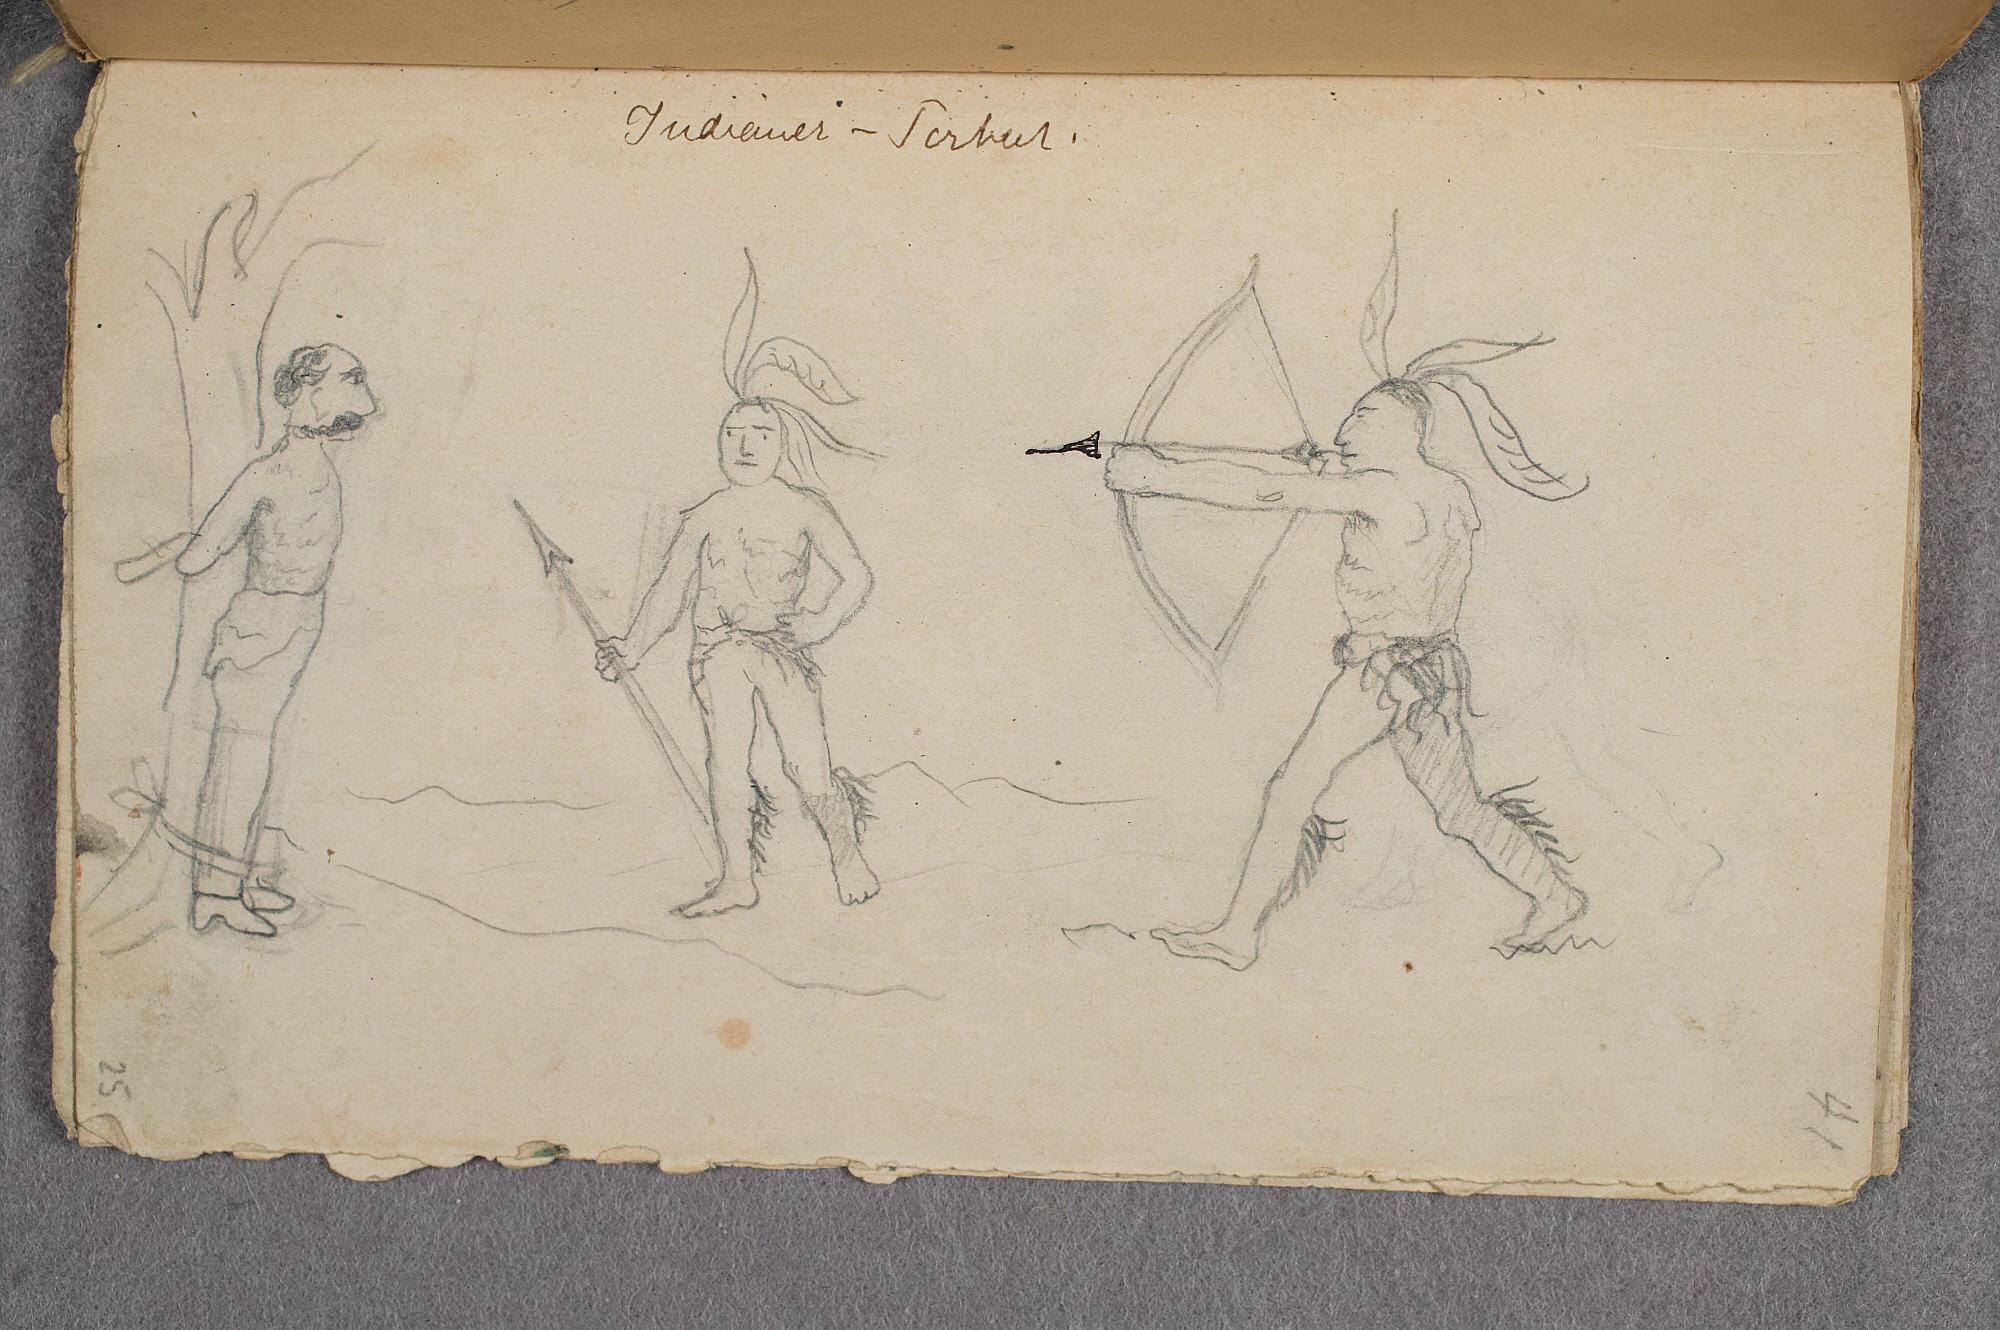 Indianer – Tortur.
25
41